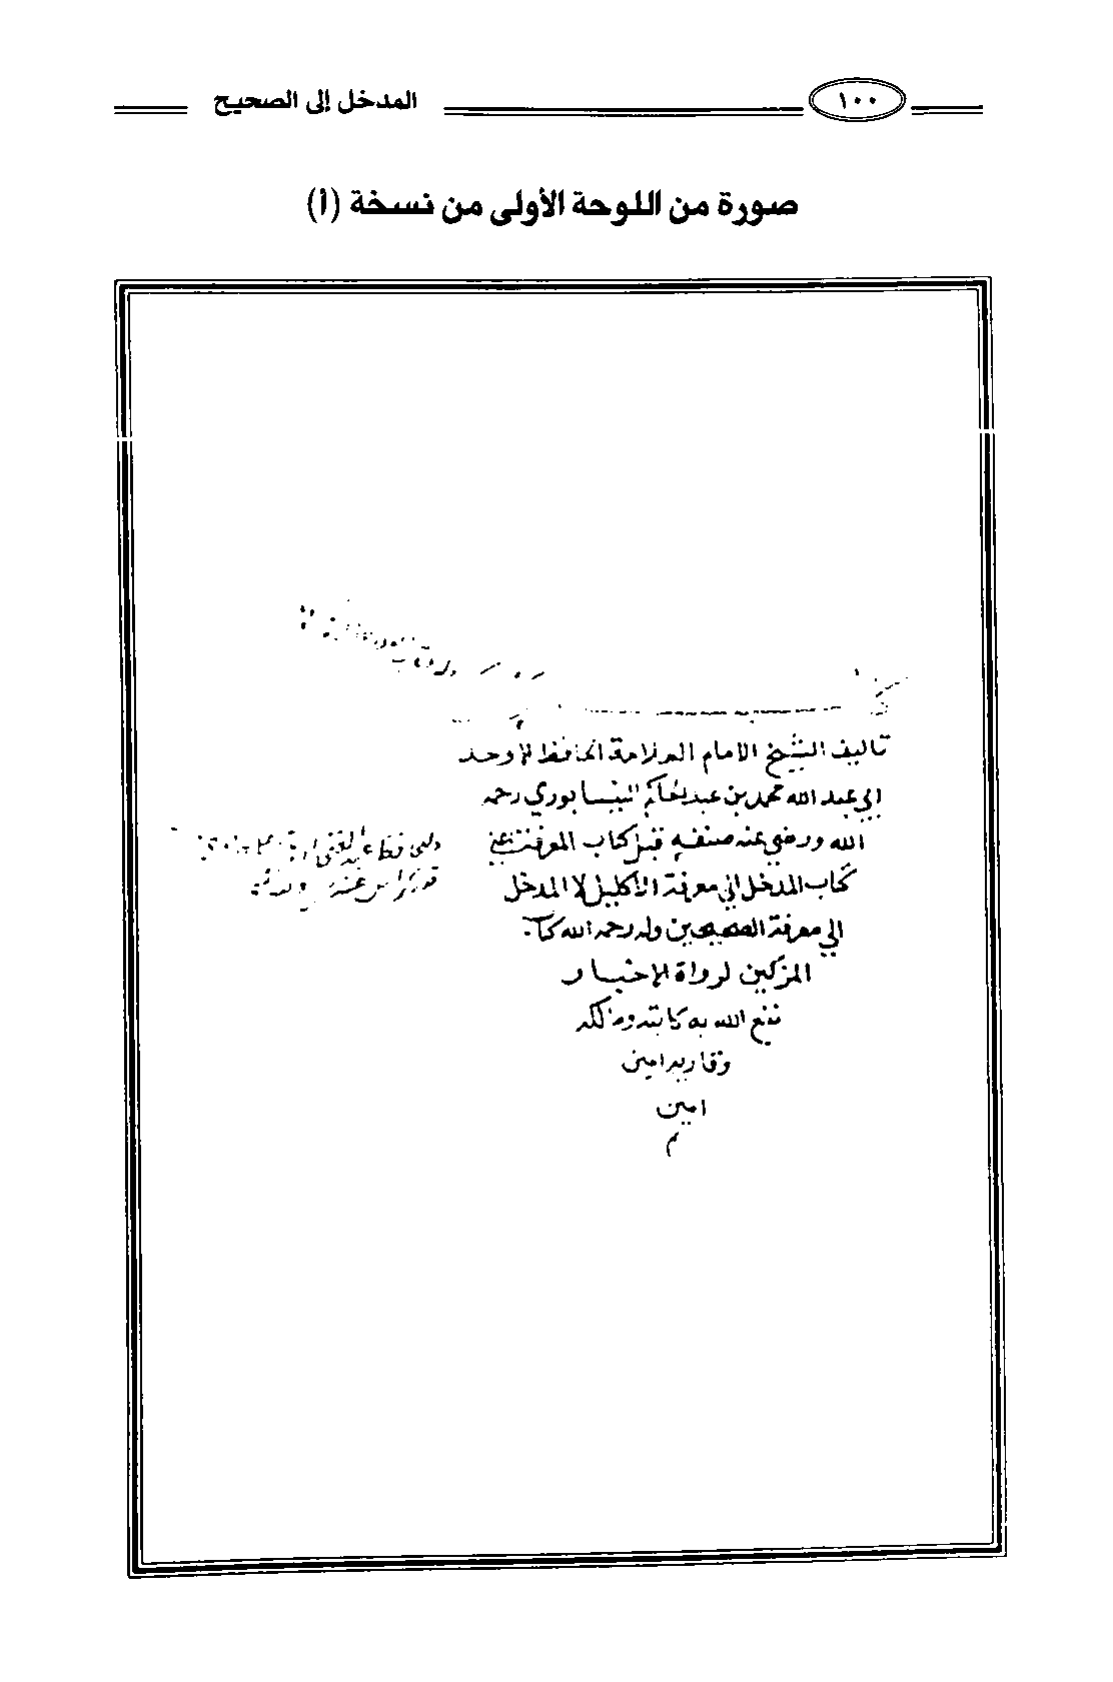 ١٠٠
المدخل إلى الصحيح
صورة من اللوحة الأولى من نسخة (أ)
تاليف الشيخ الامام العلامة الحافظ الاوحد
ابي عبد الله محمد بن عبد الحاكم النيسابوري رحمه
الله ورضي عنه صنفه قبل كتاب المعرفة
كتاب المدخل الي معرفة الاكليل لا المدخل
الي معرفة الصحيحين وله رحمه الله كتاب
المزكين لرواة الاخبار
نفع الله به كاتبه ومالكه
وقاريه امين
امين
م